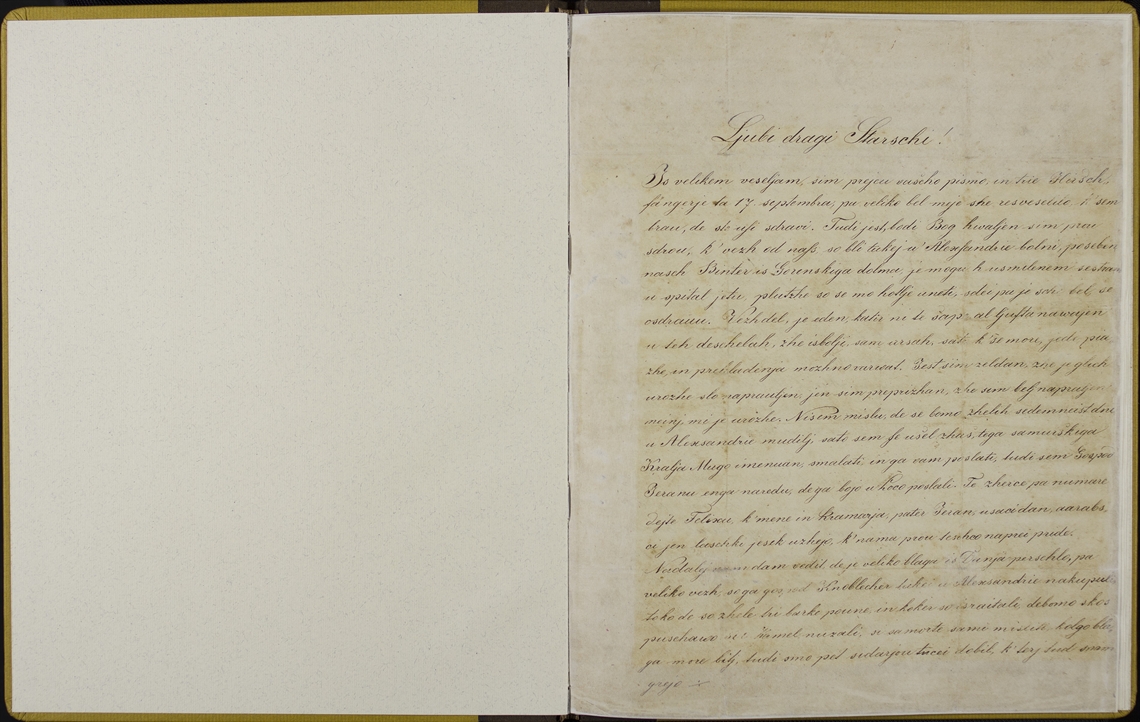 Ljubi dragi Starschi!
Is velikem veseljam, sim prejeu vasche pismo, in tue Hirsch,
fängerje ta 17. septembra, pa veliko bel mije she resveselilo k' sim
brau, de ste usi sdravi. Tudi jest, bodi Bog hwaljen sim prou
sdrou, k' vezh od nass so bli tukej u' Alexsandrie bolni, posebin
nasch Binter is Gorenskiga doma, je mogu k usmilenem sestram
u spital jeti, plutzhe so se mo hotle uneti, sdei pa je sche bel se
osdraviu. Vezhdel, je eden, katir ni te
u teh deschelah, zhe isbolji sam ursah, sato k' se mou, jede pia
zhe, in prehladenja mozhno varvat. Jest sim zeldan, zhe je gluh
urozhe slo napravljen, jen sim preprizhan, zhe sem belj napravljen
meinj mi je urozhe. Nisem mislu, de se bomo zhelih sedemneist dni
u Alexsandrie mudilj, sato sem fe usel zhas, tega samurskiga
Kralja Mugo imenuan, smalati, in ga vam poslati, tudi sem Gospod
Jeranu enga naredu, de ga bojo u poslali. To zherco pa numare
dejte k' mene in Kramarja, pater Jeran, usaci dan, uarabs,
ci jen taschki jesek uzhejo, k' nama prou teshco naprei pride.
Nadalj vam dam vedit de je veliko blaga is Dunja perschlo, pa
veliko vezh, so ga gos, od Knoblecher tukei u Alexsandrie nakupili
toko de so zhele tri barke poune, in koker so israitali, debomo skos
puschavo nuzali, si samorte sami mislite, kolgo bla,
ga more bitj, tudi smo pet dobil, k' terj tud snam
grejo